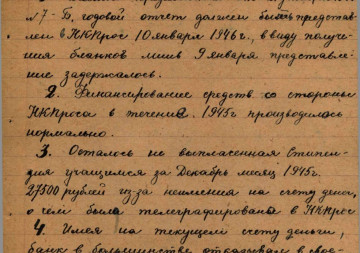 №7-Б, годовой отчет должен быть представ-
лен в НКПрос 10 января 1946 г., в виду получе-
ния бланков лишь 9 января представле-
ние задержалось.
2. Финансирование средств со стороны
НКПроса в течении. 1945 г производилось
нормально.
3. Осталось не выплаченная стипен-
дия учащимся за Декабрь месяц 1945 г.
27500 рублей из-за неимения на счету денег,
о чем была телеграфирована в НКПрос
4. Имея на текущем счету деньги,
банк в большинстве отказывал в свое-